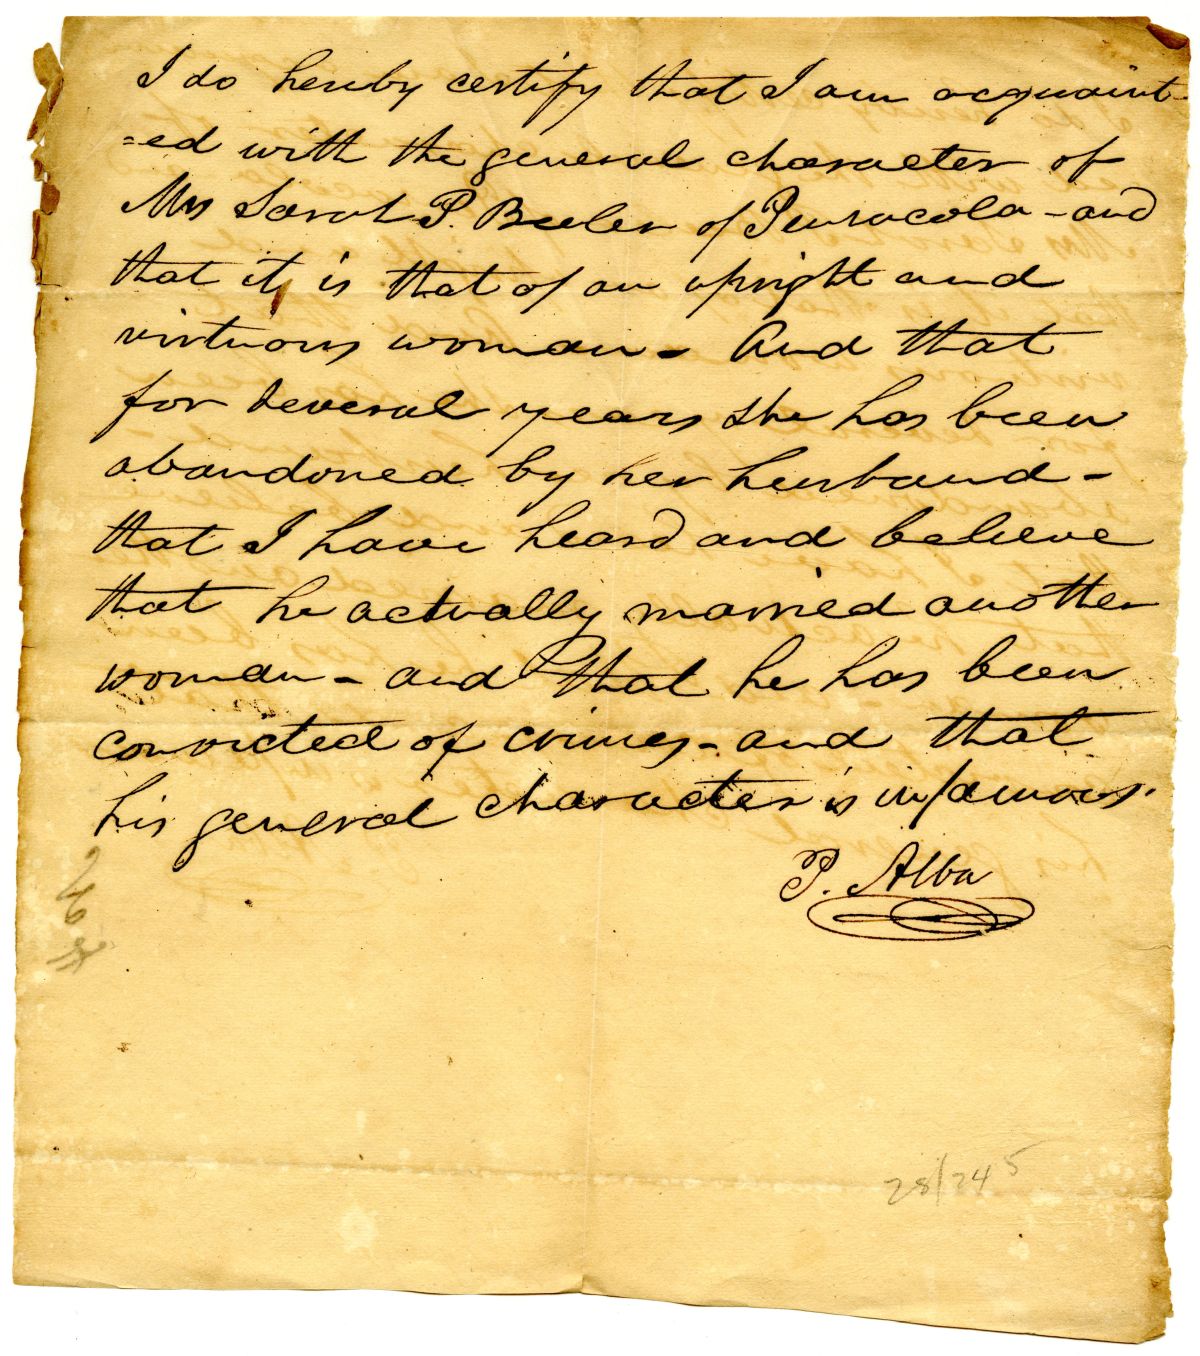 I do hereby certify that I am acquaint-
=ed with the general character of
Mrs Sarah P. Beeler of Pensacola - and
that it is that of an upright and
virtuous woman - And that
for several years she has been
abandoned by her husband -
that I have heard and believe
that he actually married another
woman - and that he has been
convicted of crimes - and that
his general character is infamous.
P. Alba
28/24 5